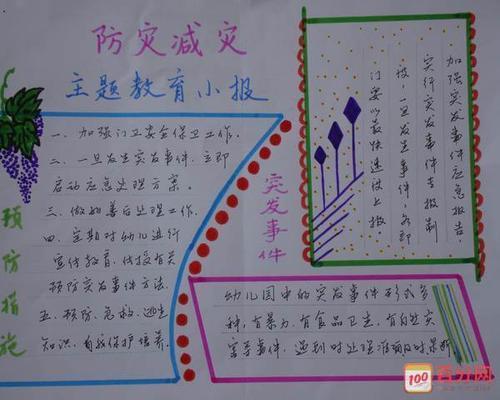 防灾减灾
主题教育小报
预防措施
一、加强门卫安全保卫工作.
二、一旦发生突发事件,立即
启动应急处理方案。
三、做好善后处理工作.
四、定期对幼儿进行
宣传教育,传授有关
预防突发事件方法.
五、预防、急救、逃生
知识、自我保护培养.
突发事件
加强突发事件应急报告.
实行突发事件专报制
度,一旦发生事件,各部
门要以最快速度上报.
幼儿园中的突发事件形式多
种,有暴力,有食品卫生,有自然灾
害等事件,遇到时处理准确及时果断
百分网
100